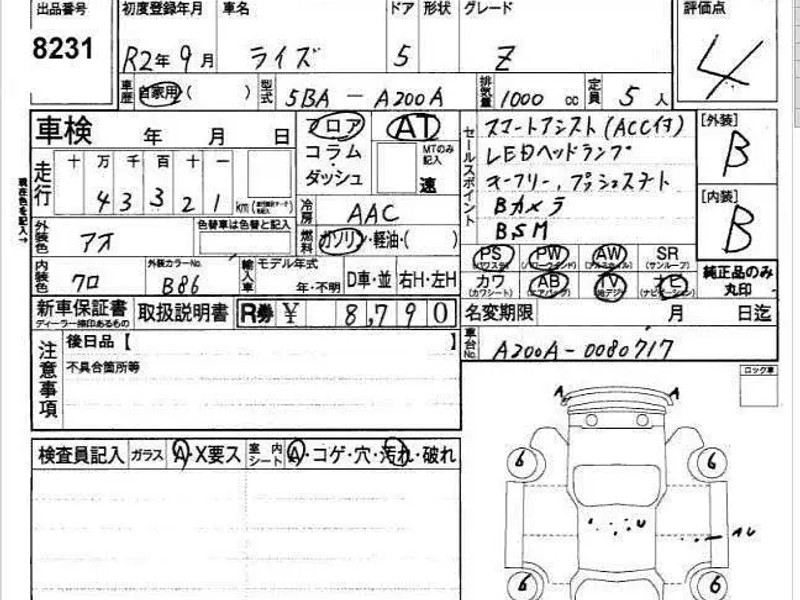 出品番号 初度登録年月 車名 ドア 形状 グレード 評価点
8231 R2年 9月 ライズ 5 Z 4
車歴 自家用 ( ) 型式 5BA-A200A 排気量 1000 cc 定員 5 人
車検 年 月 日 フロア AT セールスポイント スマートアシスト(ACC付) [外装] B
走行 十 万 千 百 十 一 コラム MTのみ記入 LEDヘッドランプ
4 3 3 2 1 km ダッシュ 速 キーフリー, プッシュスタート [内装] B
現在色を記入→
冷房 AAC Bカメラ
外装色 アオ 色替車は色替と記入 燃料 ガソリン・軽油・( ) BSM
PS (パワステ) PW (パワーウインド) AW (アルミホイル) SR (サンルーフ) 純正品のみ丸印
内装色 クロ 外装カラーNo. B86 輸入車 モデル年式 年・不明 D車・並 右H・左H カワ (カワシート) AB (エアバッグ) TV (地デジ) ナビ (ナビゲーション)
新車保証書 ディーラー捺印あるもの 取扱説明書 R券 ¥ 8,790 名変期限 月 日迄
注意事項 後日品【 】 車台No. A200A-0080717
不具合箇所等 ロック車
A A
検査員記入 ガラス A・X要ス 室内シート A・コゲ・穴・汚れ・破れ
6 6
U AU
6 6